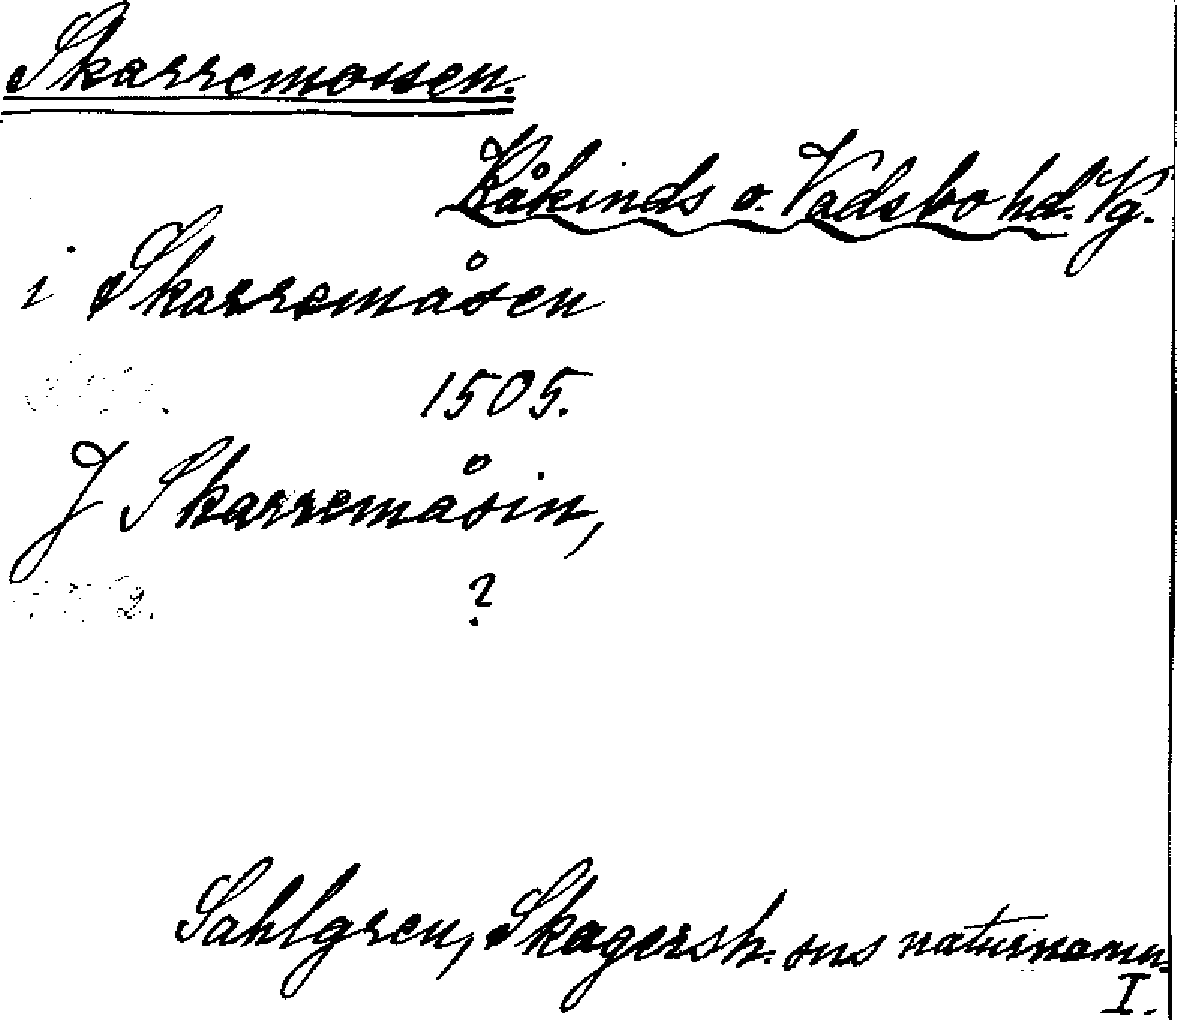 Skarremossen.
Kåkinds o. Vadsbo hd. Vg.
i Skarremåsen
1505.
J Skarremåsin,
?
Sahlgren, Skagersh. sns naturnamn
I.